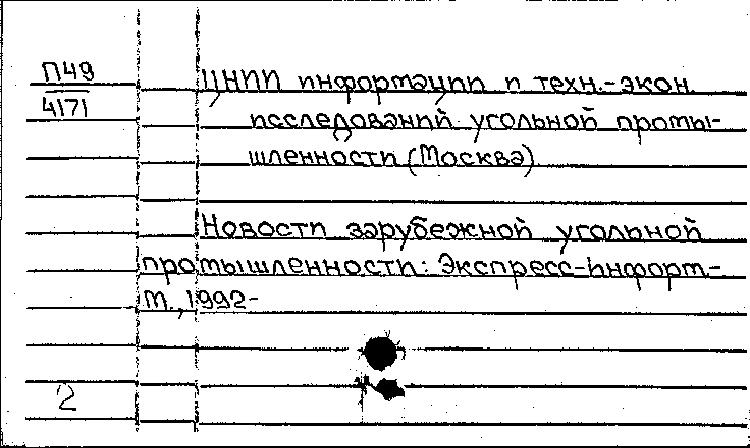 П49
4171
ЦНИИ информации и техн.-экон.
исследований угольной промы-
шленности (Москва)
Новости зарубежной угольной
промышленности: Экспресс-информ-
М., 1992-
2